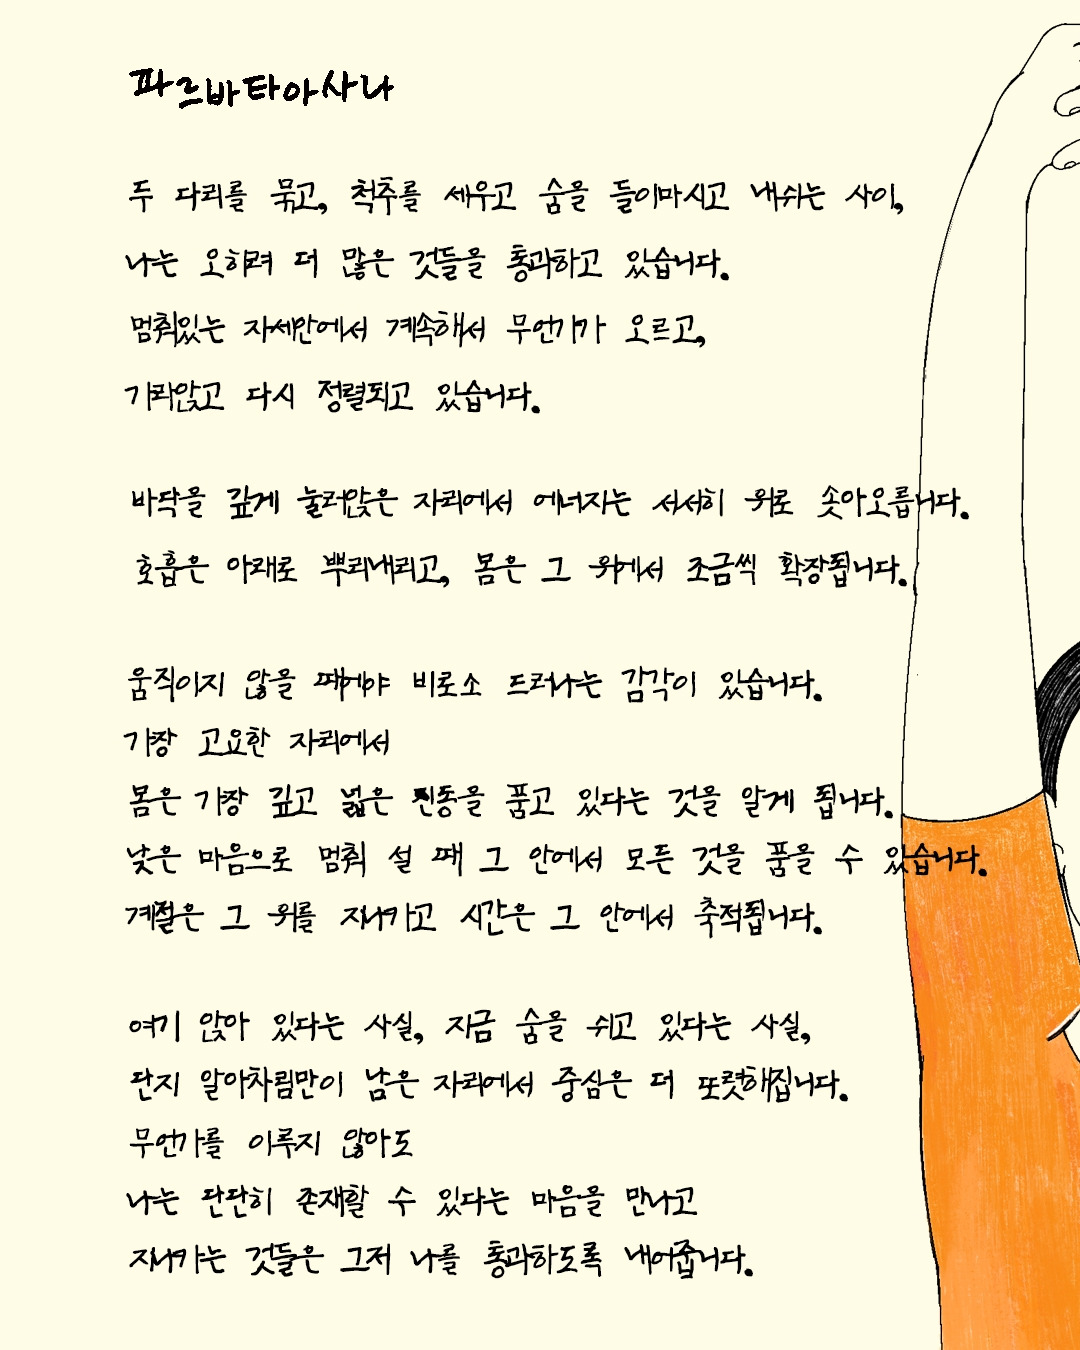 파르바타아사나
두 다리를 묶고, 척추를 세우고 숨을 들이마시고 내쉬는 사이,
나는 오히려 더 많은 것들을 통과하고 있습니다.
멈춰있는 자세안에서 계속해서 무언가가 오르고,
가라앉고 다시 정렬되고 있습니다.
바닥을 깊게 눌러앉은 자리에서 에너지는 서서히 위로 솟아오릅니다.
호흡은 아래로 뿌리내리고, 몸은 그 위에서 조금씩 확장됩니다.
움직이지 않을 때에야 비로소 드러나는 감각이 있습니다.
가장 고요한 자리에서
몸은 가장 깊고 넓은 진동을 품고 있다는 것을 알게 됩니다.
낮은 마음으로 멈춰 설 때 그 안에서 모든 것을 품을 수 있습니다.
계절은 그 위를 지나가고 시간은 그 안에서 축적됩니다.
여기 앉아 있다는 사실, 지금 숨을 쉬고 있다는 사실,
단지 알아차림만이 남은 자리에서 중심은 더 또렷해집니다.
무언가를 이루지 않아도
나는 단단히 존재할 수 있다는 마음을 만나고
지나가는 것들은 그저 나를 통과하도록 내어줍니다.